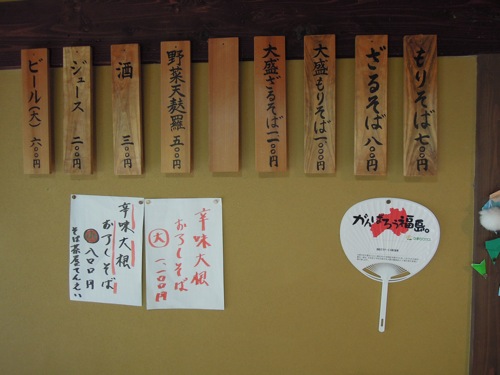 もりそば 七〇〇円
ざるそば 八〇〇円
大盛もりそば 一、〇〇〇円
大盛ざるそば 一、一〇〇円
野菜天麩羅 五〇〇円
酒 三〇〇円
ジュース 二〇〇円
ビール(大) 六〇〇円
辛味大根
おろしそば
大 一、一〇〇円
辛味大根
おろしそば
八〇〇円
がんばろう福島。